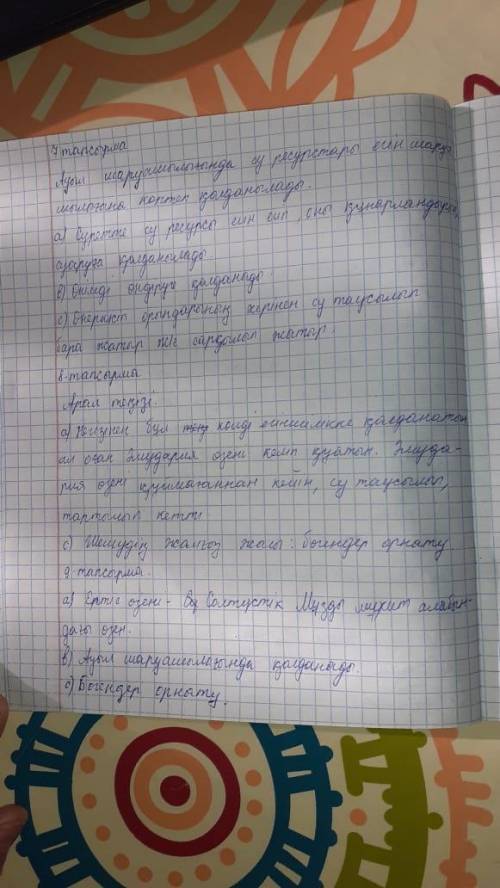 7 тапсырма
Ауыл шаруашылығында су ресурстары егін шаруа
шылығына көптеп қолданылады.
а) Суретте су ресурсы егін егіп, оны құнарландыру,
суаруға қолданылады.
в) Өнімді өндіруге қолданыды.
с) Өнеркәсіп орындарының кержен су таусылып
бара жатыр және сарқылып жатыр.
8-тапсырма
Арал теңізі.
а) Негізінен бұл көлді егіншілікке қолданатын
ал оған Әмудария өзені келіп құятын. Әмуда-
рия өзені құймағаннан кейін, су таусылып,
тартылып кетті.
с) Шешудің жалғыз жолы: бөгендер орнату.
9-тапсырма.
а) Ертіс өзені - Бұ Солтүстік Мұзды мұхит алабын-
дағы өзен.
в) Ауыл шаруашылығында қолданыды.
с) Бөгендер орнату.